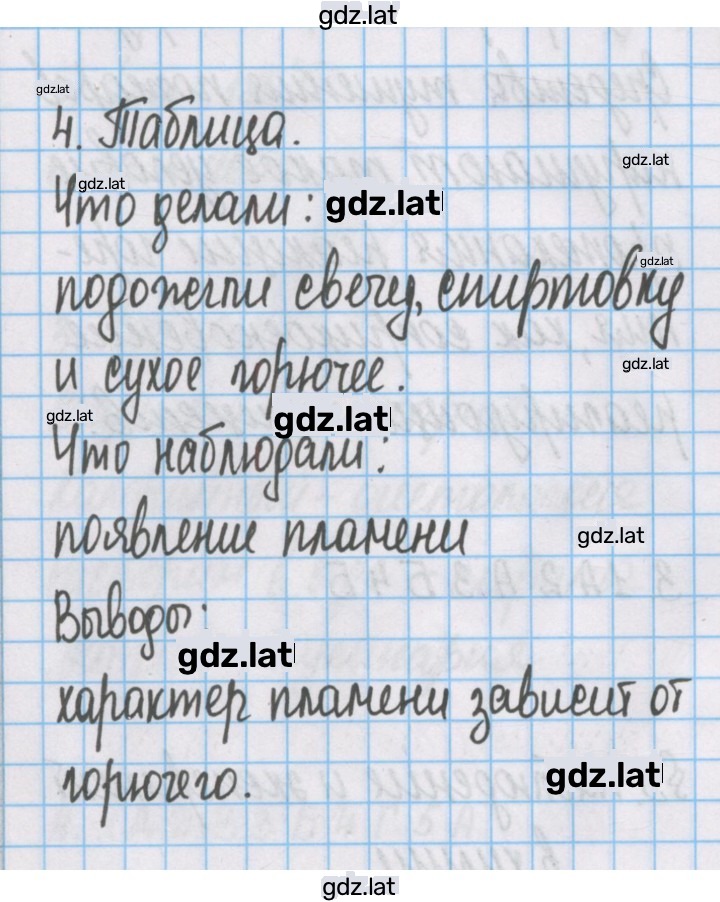 gdz.lat
gdz.lat
4. Таблица.
gdz.lat
gdz.lat
Что делали: gdz.lat
gdz.lat
подожгли свечу, спиртовку
gdz.lat
и сухое горючее.
gdz.lat
gdz.lat
Что наблюдали:
gdz.lat
появление пламени
Выводы:
gdz.lat
характер пламени зависит от
gdz.lat
горючего.
gdz.lat